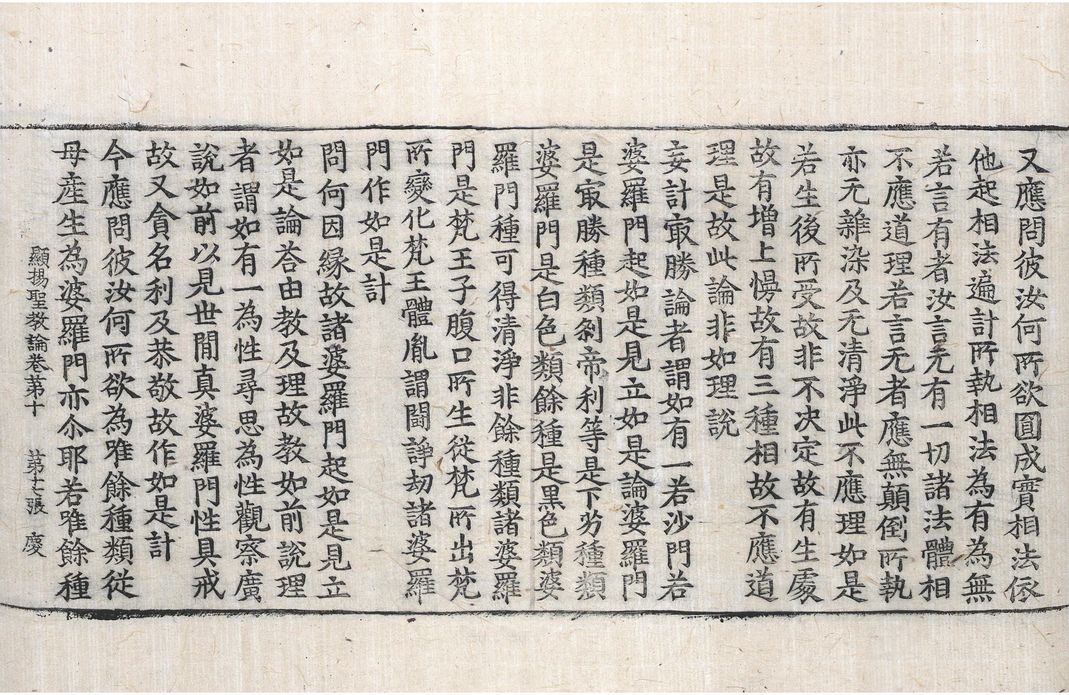 又應問彼汝何所欲圓成實相法依
他起相法遍計所執相法為有為無
若言有者汝言无有一切諸法體相
不應道理若言无者應無顛倒所執
亦无雜染及无清淨此不應理如是
若生後所受故非不決定故有生處
故有增上慢故有三種相故不應道
理是故此論非如理說
妄計㝡勝論者謂如有一若沙門若
婆羅門起如是見立如是論婆羅門
是㝡勝種類刹帝利等是下劣種類
婆羅門是白色類餘種是黑色類婆
羅門種可得清淨非餘種類諸婆羅
門是梵王子腹口所生從梵所出梵
所變化梵王體胤謂鬪諍劫諸婆羅
門作如是計
問何因緣故諸婆羅門起如是見立
如是論荅由教及理故教如前說理
者謂如有一為性尋思為性觀察廣
說如前以見世間真婆羅門性具戒
故又貪名利及恭敬故作如是計
今應問彼汝何所欲為唯餘種類從
母產生為婆羅門亦尒耶若唯餘種
顯揚聖教論卷苐十 苐十七張 慶